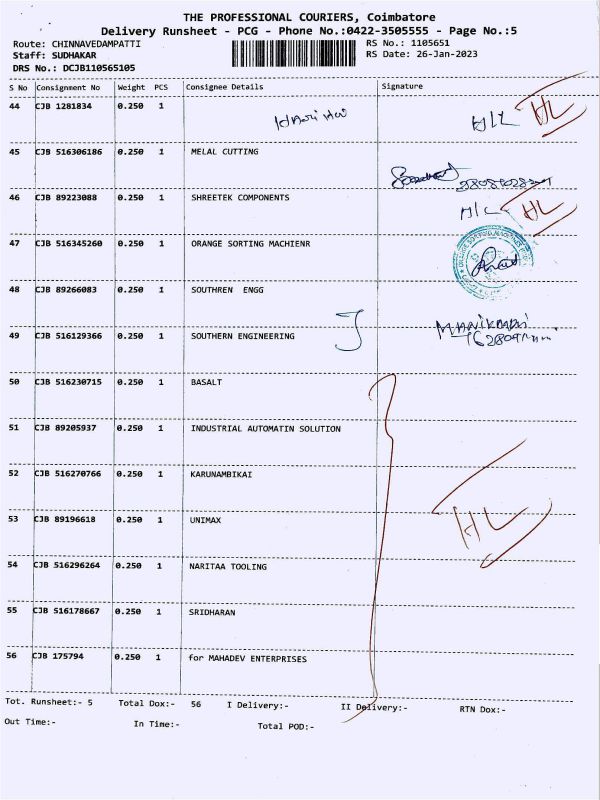 THE PROFESSIONAL COURIERS, Coimbatore
Delivery Runsheet - PCG - Phone No.:0422-3505555 - Page No.:5
Route: CHINNAVEDAMPATTI RS No.: 1105651
Staff: SUDHAKAR RS Date: 26-Jan-2023
DRS No.: DCJB110565105
S No Consignment No Weight PCS Consignee Details Signature
44 CJB 1281834 0.250 1 H/L HL
45 CJB 516306186 0.250 1 MELAL CUTTING
46 CJB 89223088 0.250 1 SHREETEK COMPONENTS H/L HL
47 CJB 516345260 0.250 1 ORANGE SORTING MACHIENR
48 CJB 89266083 0.250 1 SOUTHREN ENGG
49 CJB 516129366 0.250 1 SOUTHERN ENGINEERING
50 CJB 516230715 0.250 1 BASALT
51 CJB 89205937 0.250 1 INDUSTRIAL AUTOMATIN SOLUTION
52 CJB 516270766 0.250 1 KARUNAMBIKAI
53 CJB 89196618 0.250 1 UNIMAX HL
54 CJB 516296264 0.250 1 NARITAA TOOLING
55 CJB 516178667 0.250 1 SRIDHARAN
56 CJB 175794 0.250 1 for MAHADEV ENTERPRISES
Tot. Runsheet:- 5 Total Dox:- 56 I Delivery:- II Delivery:- RTN Dox:-
Out Time:- In Time:- Total POD:-